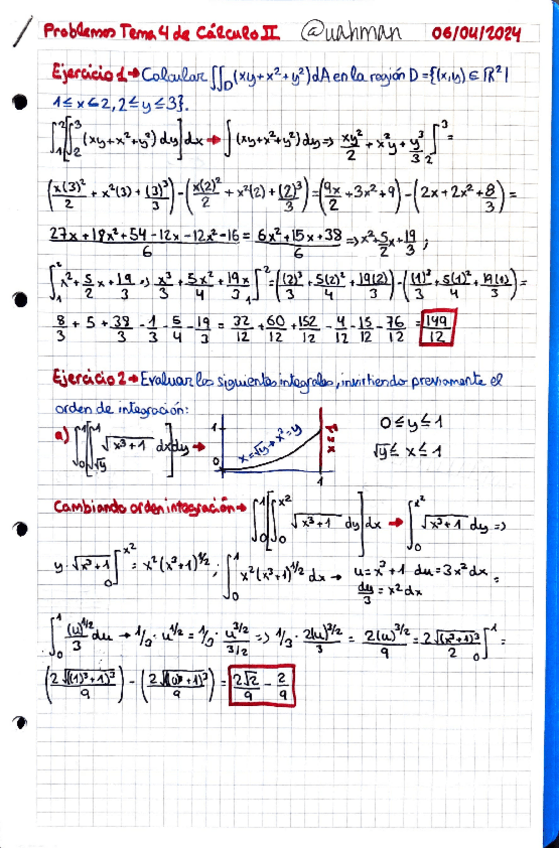 Problemas Tema 4 de Cálculo II @uahman 06/04/2024
Ejercicio 1→ Calcular ∬_D (xy+x²+y²)dA en la región D={(x,y)∈ℝ²|
1≤x≤2, 2≤y≤3}.
∫₁²[∫₂³(xy+x²+y²)dy]dx → ∫(xy+x²+y²)dy ⇒ xy²/2 + x²y + y³/3 ]₂³ =
(x(3)²/2 + x²(3) + (3)³/3) - (x(2)²/2 + x²(2) + (2)³/3) = (9x/2 + 3x² + 9) - (2x + 2x² + 8/3) =
(27x + 18x² + 54 - 12x - 12x² - 16)/6 = (6x² + 15x + 38)/6 ⇒ x² + 5/2 x + 19/3 ;
∫₁² x² + 5/2 x + 19/3 ⇒ x³/3 + 5x²/4 + 19x/3 ]₁² = ((2)³/3 + 5(2)²/4 + 19(2)/3) - ((1)³/3 + 5(1)²/4 + 19(1)/3) =
8/3 + 5 + 38/3 - 1/3 - 5/4 - 19/3 = 32/12 + 60/12 + 152/12 - 4/12 - 15/12 - 76/12 = 149/12
Ejercicio 2→ Evaluar las siguientes integrales, invirtiendo previamente el
orden de integración:
a) ∫₀¹[∫_√y ¹ √(x³+1) dx]dy →
1
0
1
x=√y → x²=y
x=1
0≤y≤1
√y≤x≤1
Cambiando orden integración→ ∫₀¹[∫₀^x² √(x³+1) dy]dx → ∫₀^x² √(x³+1) dy ⇒
y·√(x³+1) ]₀^x² = x²(x³+1)^1/2 ; ∫₀¹ x²(x³+1)^1/2 dx → u=x³+1 du=3x²dx =
du/3 = x²dx
∫₀¹ (u)^1/2/3 du → 1/3·u^1/2 = 1/3·u^3/2/3/2 ⇒ 1/3·2(u)^3/2/3 = 2(u)^3/2/9 = 2√(x³+1)³/2 ]₀¹ =
(2√((1)³+1)³/9) - (2√((0)³+1)³/9) = 2√2/9 - 2/9